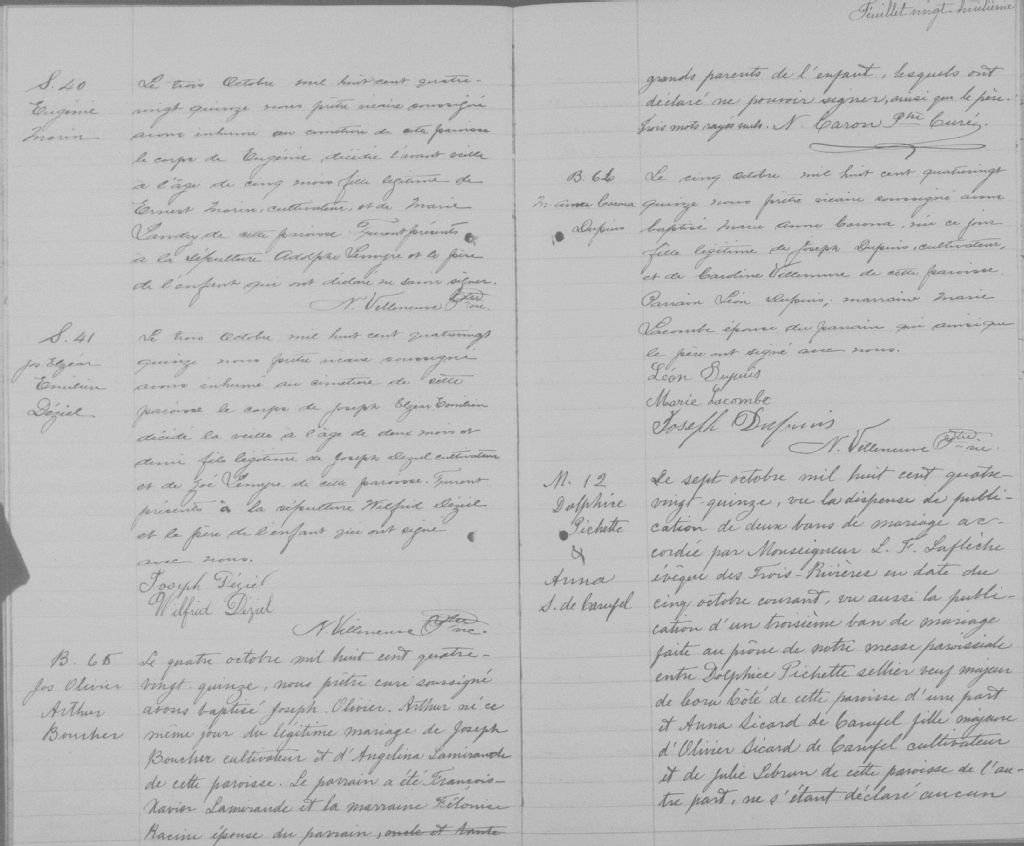 S. 40
Eugénie
Morin
Le trois Octobre mil huit cent quatre-
vingt quinze nous prêtre vicaire soussigné
avons inhumé au cimetière de cette paroisse
le corps de Eugénie, décédée l'avant veille
à l'âge de cinq mois fille légitime de
Ernest Morin, cultivateur, et de Marie
Landry, de cette paroisse. Furent présents
à la sépulture Adolphe Lemyre et le père
de l'enfant qui ont déclaré ne savoir signer.
N. Villeneuve Ptre vic.
S. 41
Jos. Elzéar
Emilien
Déziel
Le trois Octobre mil huit cent quatrevingt
quinze nous prêtre vicaire soussigné
avons inhumé au cimetière de cette
paroisse le corps de Joseph Elzear Emilien
décédé la veille à l'âge de deux mois et
demi fils légitime de Joseph Deziel cultivateur
et de Zoé Lemyre de cette paroisse. Furent
présents à la sépulture Wilfrid Déziel
et le père de l'enfant qui ont signé
avec nous.
Joseph Déziel
Wilfrid Déziel
N. Villeneuve Ptre vic.
B. 65
Jos Olivier
Arthur
Boucher
Le quatre octobre mil huit cent quatre-
vingt quinze, nous prêtre curé soussigné
avons baptisé Joseph. Olivier. Arthur né ce
même jour du légitime mariage de Joseph
Boucher cultivateur et d'Angelina Lamirande
de cette paroisse. Le parrain a été François-
Xavier Lamirande et la marraine Hélonise
Racine épouse du parrain, oncle et tante
Feuillet vingt-huitième
grands parents de l'enfant, lesquels ont
déclaré ne pouvoir signer, ainsi que le père.
Trois mots rayés nuls. N. Caron Ptre Curé.
B. 62
M. Anna Corona
Dupuis
Le cinq Octobre mil huit cent quatrevingt
quinze nous prêtre vicaire soussigné avons
baptisé Marie Anne Corona, née ce jour
fille légitime de Joseph Dupuis, cultivateur,
et de Caroline Villemure de cette paroisse.
Parrain Léon Dupuis; marraine Marie
Lacombe épouse du parrain qui ainsi que
le père ont signé avec nous.
Léon Dupuis
Marie Lacombe
Joseph Dupuis
N. Villeneuve Ptre vic.
M. 12
Dolphice
Pichette
&
Anna
S. de Carufel
Le sept octobre mil huit cent quatre-
vingt-quinze, vu la dispense de publi-
cation de deux bans de mariage ac-
cordée par Monseigneur L. F. Laflèche
évêque des Trois-Rivières en date du
cinq octobre courant, vu aussi la publi-
cation d'un troisième ban de mariage
faite au prône de notre messe paroissiale
entre Dolphice Pichette sellier veuf majeur
de Cora Côté de cette paroisse d'une part
et Anna Sicard de Carufel fille majeure
d'Olivier Sicard de Carufel cultivateur
et de Julie Lebrun de cette paroisse de l'au-
tre part, ne s'étant déclaré aucun